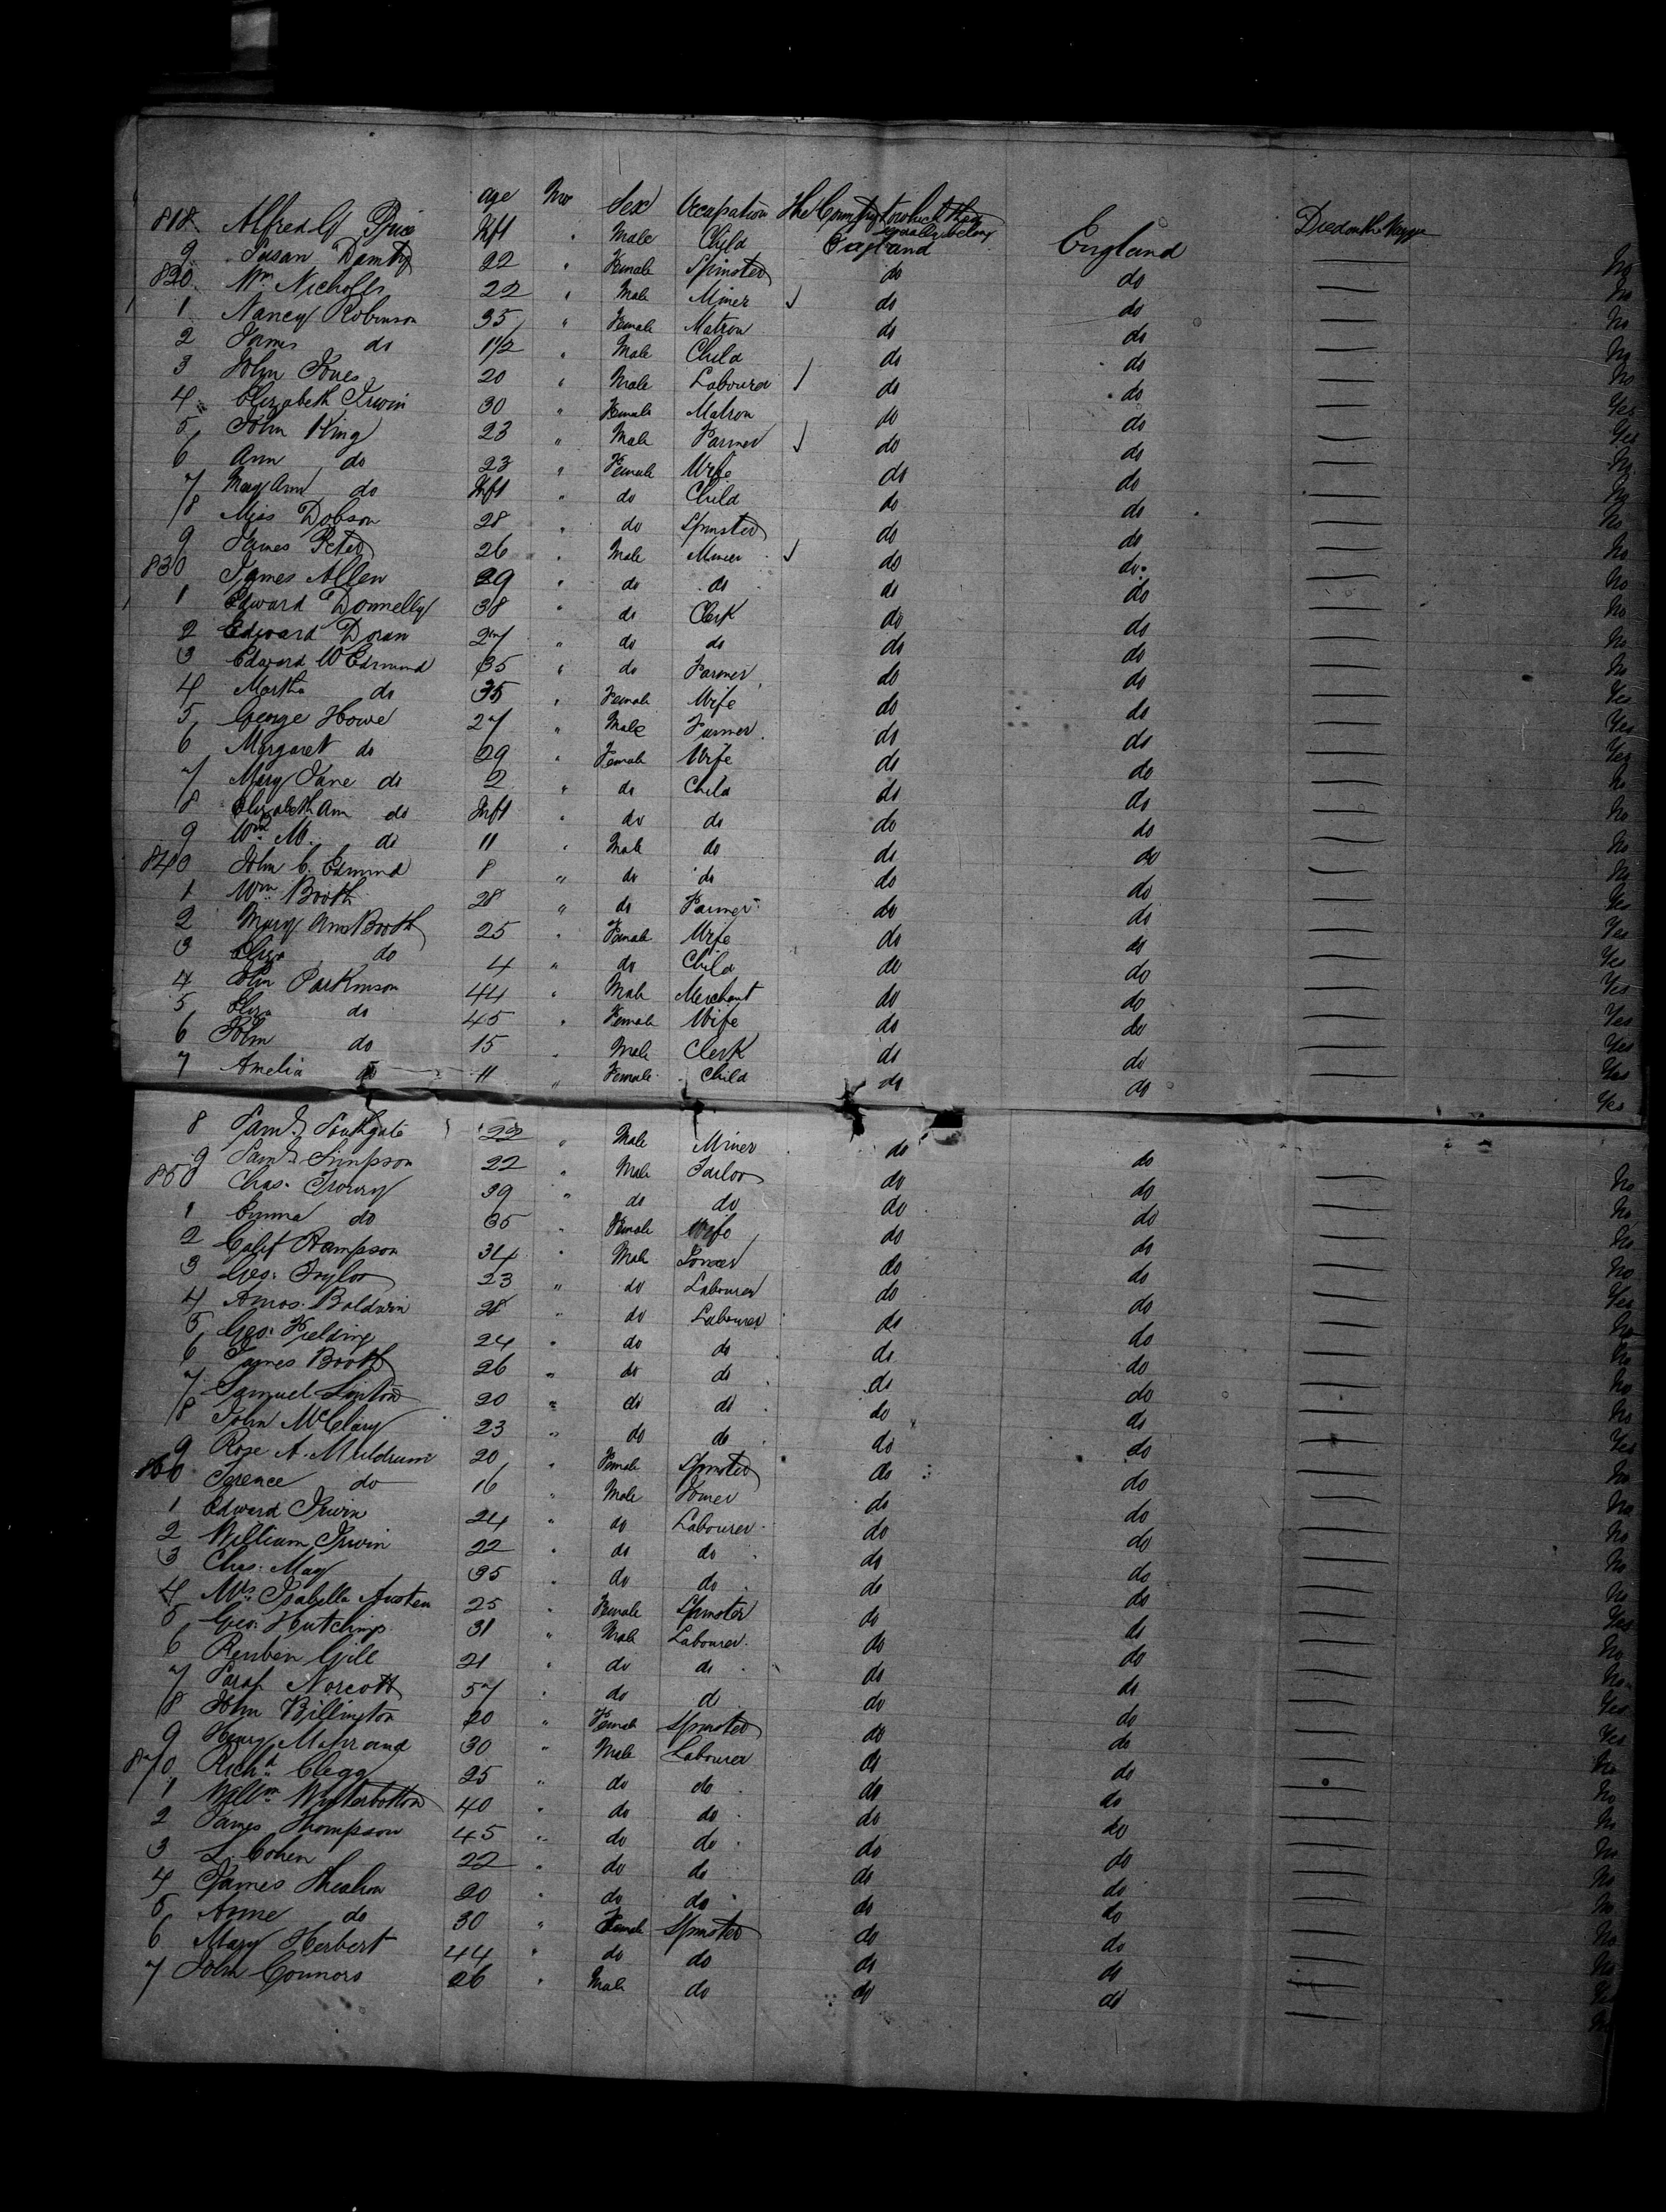 age Mo Sex Occupation The Country to which they usually belong Died on the Voyage
818 Alfred G Price Inft " Male Child England England No
9 Susan 22 " Female Spinster do do No
820 Wm Nicholls 22 " Male Miner do do No
1 Nancy Robinson 35 " Female Matron do do No
2 James do 1 1/2 " Male Child do do No
3 John Jones 20 " Male Labourer do do Yes
4 Elizabeth Irwin 30 " Female Matron do do Yes
5 John King 23 " Male Farmer do do No
6 Ann do 23 " Female Wife do do No
7 Mary Ann do Inft " do Child do do No
8 Miss Dobson 28 " do Spinster do do No
9 James Peter 26 " Male Miner do do No
830 James Allen 29 " do do do do No
1 Edward Donnelly 38 " do Clerk do do No
2 Edward Doran 27 " do do do do No
3 Edward W Edmund 35 " do Farmer do do Yes
4 Martha do 35 " Female Wife do do Yes
5 George Howe 27 " Male Farmer do do Yes
6 Margaret do 29 " Female Wife do do No
7 Mary Jane do 2 " do Child do do No
8 Elizabeth Ann do Inft " do do do do No
9 Wm M. do 11 " Male do do do No
840 John C. Edmund 8 " do do do do Yes
1 Wm Booth 28 " do Farmer do do Yes
2 Mary Ann Booth 25 " Female Wife do do Yes
3 Eliza do 4 " do Child do do Yes
4 John Parkinson 44 " Male Merchant do do Yes
5 Eliza do 45 " Female Wife do do Yes
6 John do 15 " Male Clerk do do Yes
7 Amelia do 11 " Female Child do do Yes
8 Saml Southgate 22 " Male Miner do do No
9 Saml Simpson 22 " Male Tailor do do No
850 Chas. 39 " do do do do No
1 Emma do 35 " Female Wife do do No
2 Hampson 34 " Male do do Yes
3 Geo. Taylor 23 " do Labourer do do No
4 Amos Baldwin 28 " do Labourer do do No
5 Geo. Fielding 24 " do do do do No
6 James Booth 26 " do do do do No
7 Samuel 20 " do do do do Yes
8 John McClary 23 " do do do do No
9 Rose A. Muldrum 20 " Female Spinster do do No
860 Terence do 16 " Male do do No
1 Edward Irwin 24 " do Labourer do do No
2 William Irwin 22 " do do do do No
3 Chas. May 35 " do do do do Yes
4 Mrs Isabella Austen 25 " Female Spinster do do No
5 Geo. Hutchings 31 " Male Labourer do do No
6 Reuben Gill 21 " do do do do Yes
7 Sarah Norcott 57 " do do do do Yes
8 John Billington 20 " Female Spinster do do No
9 Henry 30 " Male Labourer do do No
870 Richd Clegg 25 " do do do do No
1 Willm Winterbottom 40 " do do do do No
2 James Thompson 45 " do do do do No
3 L. Cohen 22 " do do do do No
4 James 20 " do do do do No
5 Anne do 30 " Female Spinster do do No
6 Mary Herbert 44 " do do do do
7 John Connors 26 " Male do do do No